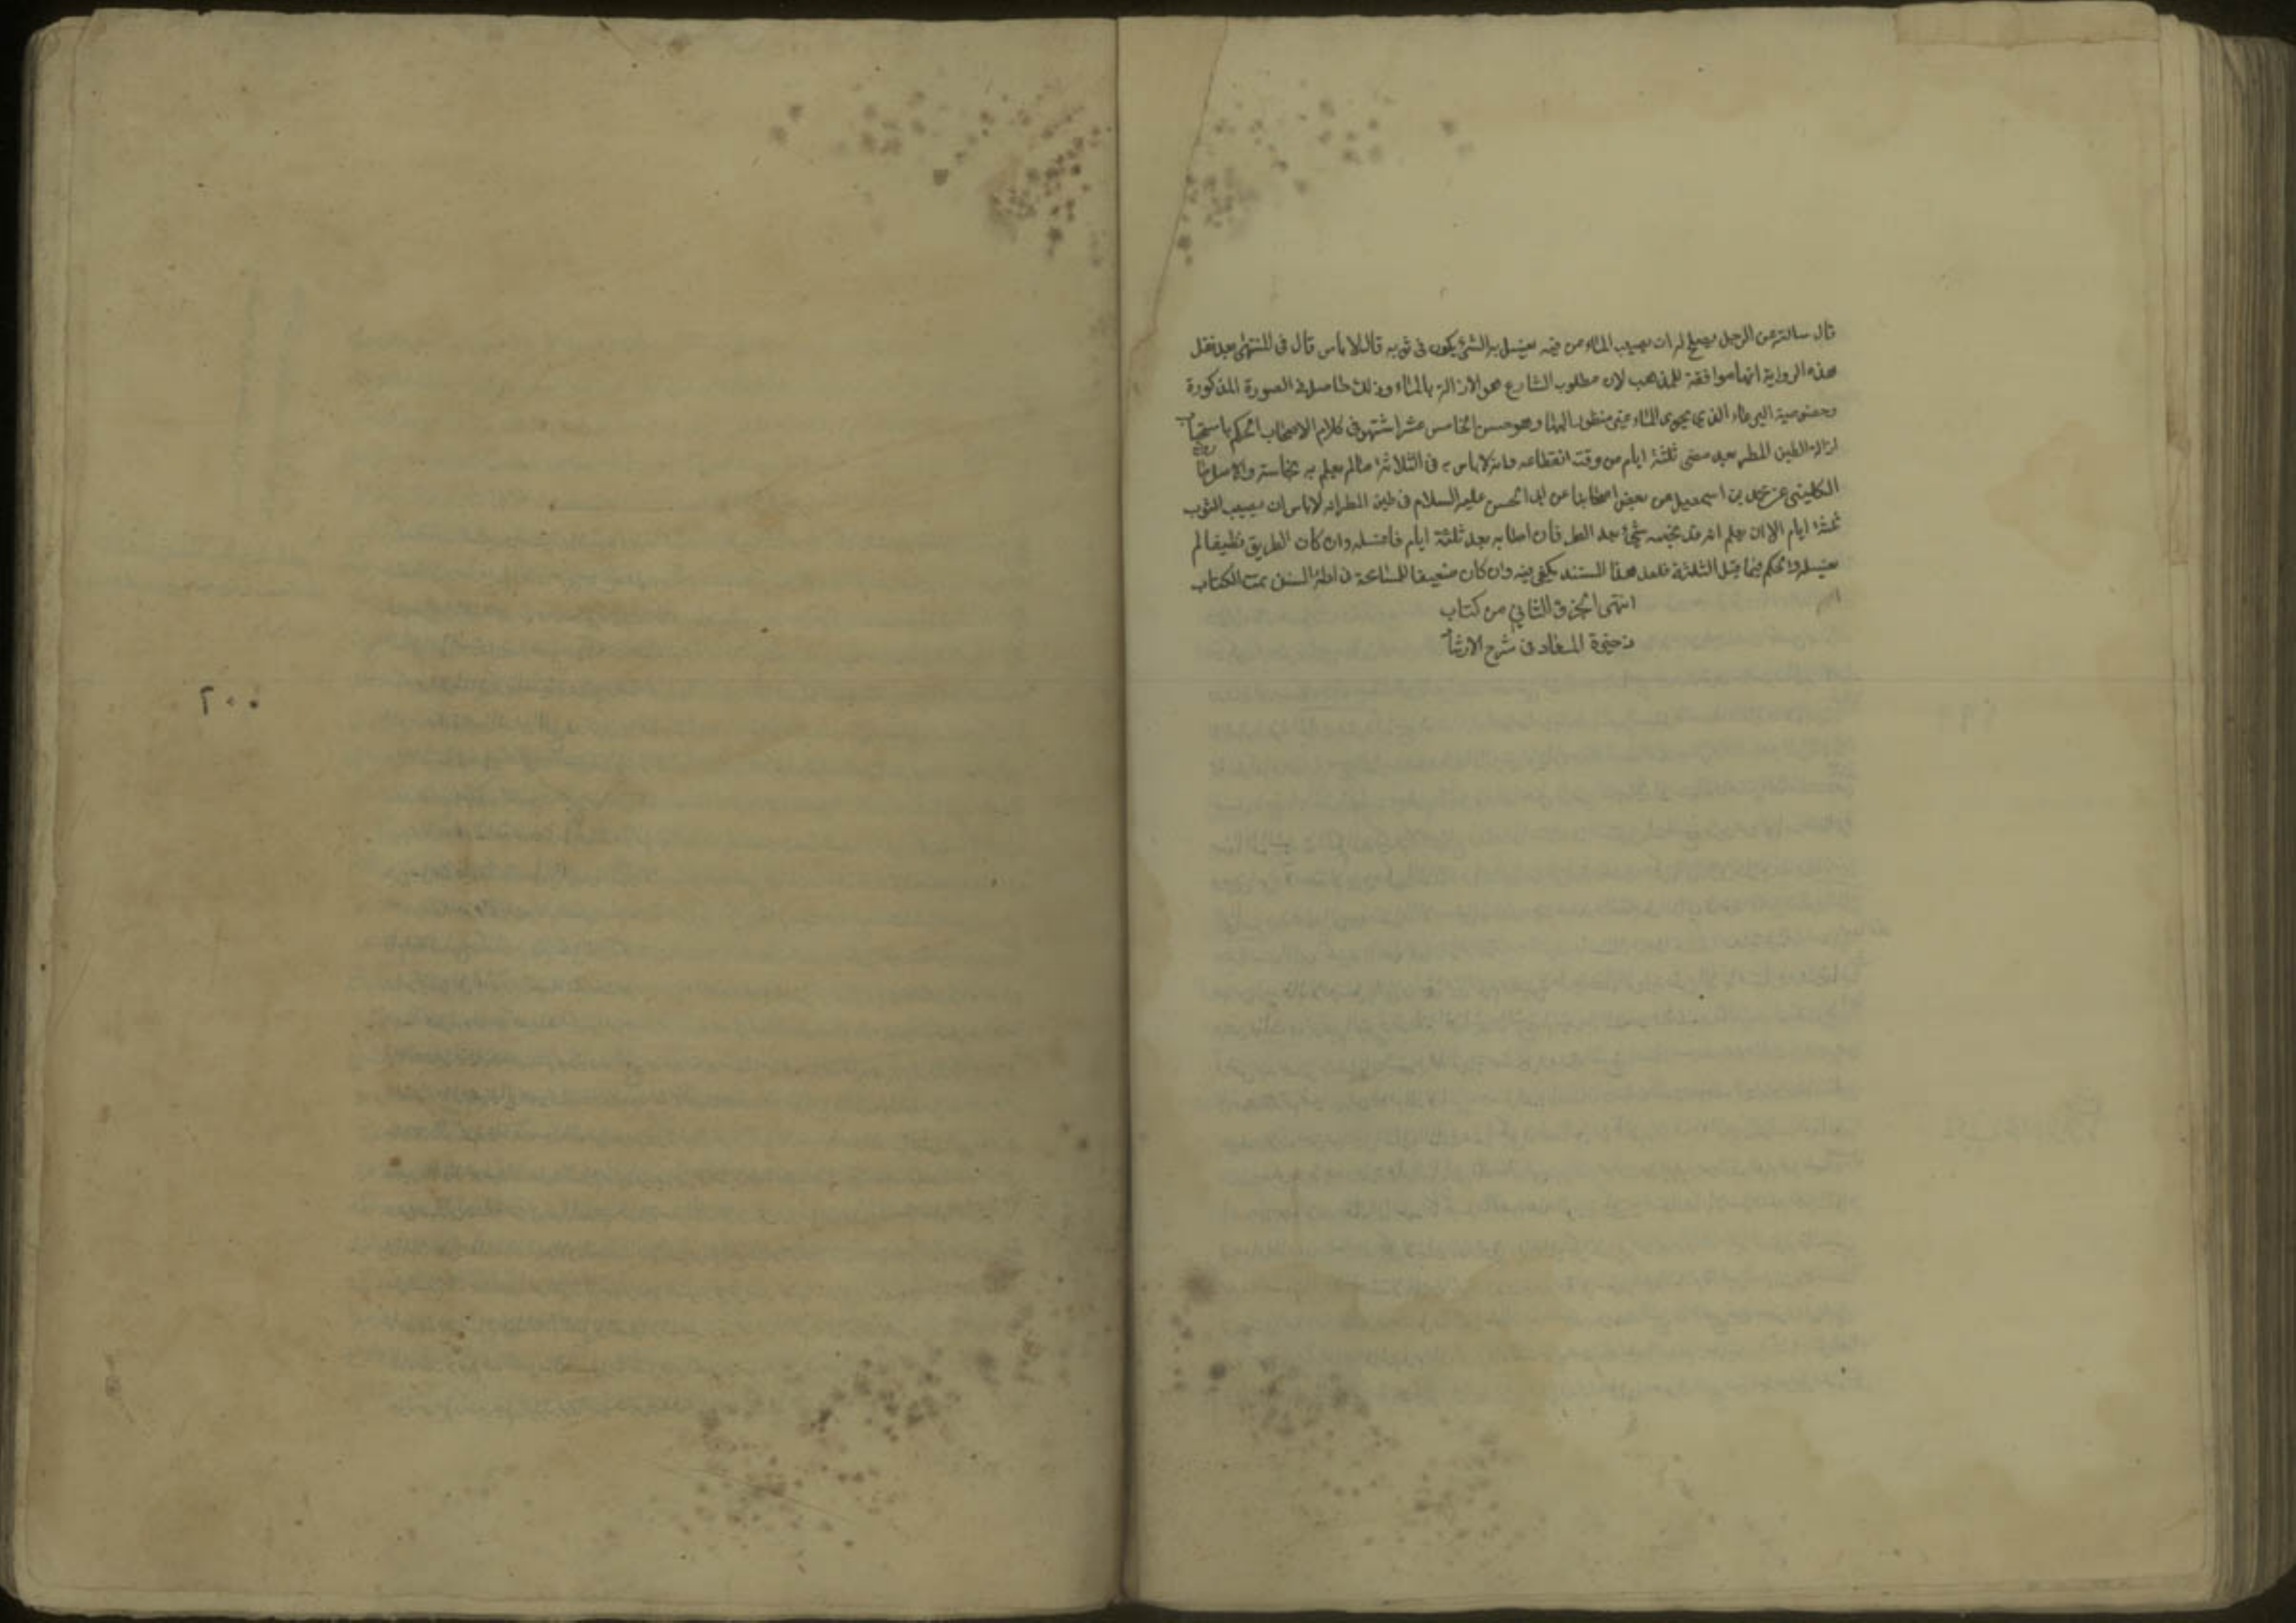 قال سالته عن الرجل يصلح له ان يصيب الماء من فيه يغسل به الشئ يكون فى ثوبه قال لا باس قال فى المنتهى بعد نقل
هذه الرواية انها موافقة للمذهب لان مطلوب الشارع هو الازالة بالماء وذلك حاصل فى الصورة المذكورة
وخصوصية الوعاء الذى يحوى الماء غير منظور اليها وهو حسن الخامس عشر اشتهر فى كلام الاصحاب الحكم باستحباب
ازالة طين المطر بعد مضى ثلثة ايام من وقت انقطاعه وانه لا باس به فى الثلاثة ما لم يعلم به نجاسته والاصل
الكلينى عن محمد بن اسمعيل عن بعض اصحابنا عن ابى الحسن عليه السلام فى طين المطر انه لا باس ان يصيب الثوب
ثلثة ايام الا ان يعلم انه قد نجسه شئ بعد المطر فان اصابه بعد ثلثة ايام فاغسله وان كان الطريق نظيفا لم
يغسله والحكم فيما قبل الثلثة فلعل هذا المستند يكفى فيه وان كان ضعيفا للمسامحة فى ادلة السنن تمت الكتاب
انتهى الجزؤ الثانى من كتاب
ذخيرة المعاد فى شرح الارشاد
٢٠٠